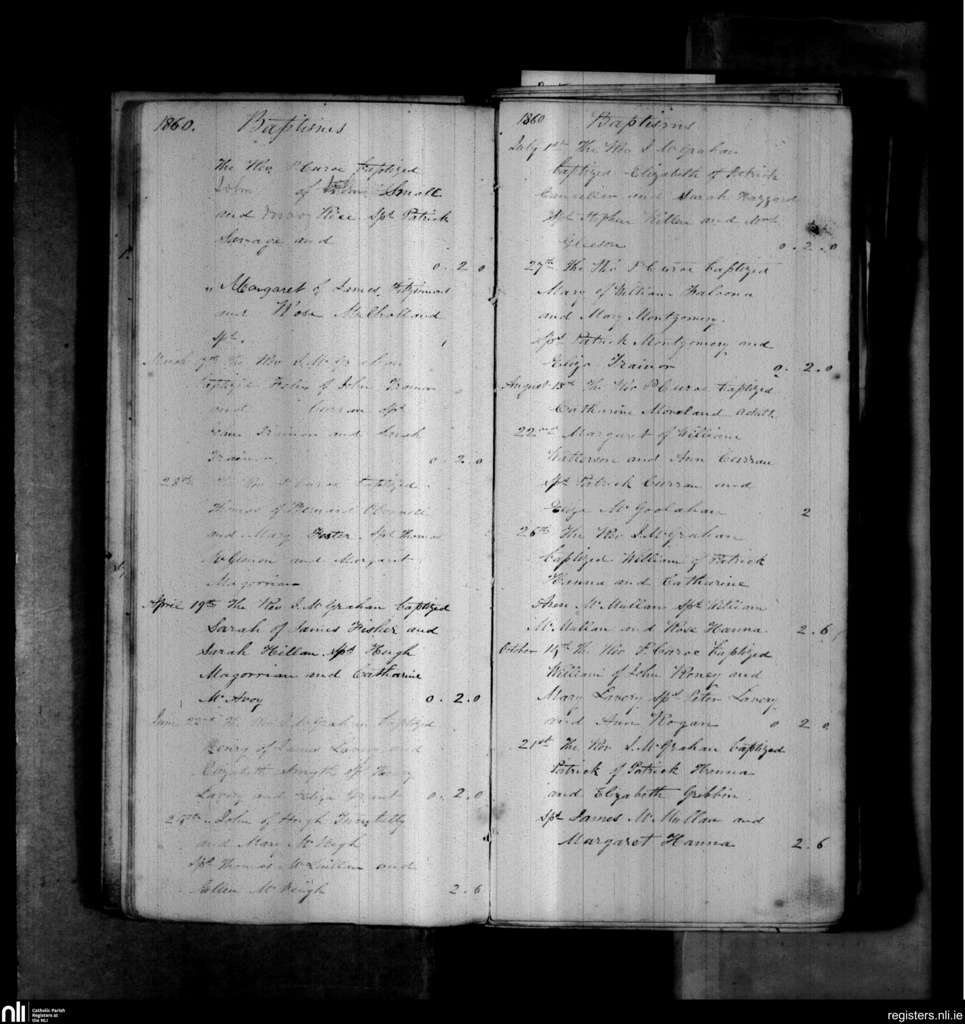 1860. Baptisms
The Rev. P Curoe baptized
John of John Small
and Rice Sps Patrick
Savage and
0 . 2 . 0
" Margaret of James Fitzsimons
and Rose Mulholland
Sps.
March 7th The Rev J. McGrahan
baptized of John Trainor
and Curran Sps
Trainor and Sarah
Trainor 0 . 2 . 0
28th The Rev P Curoe baptized
Thomas of Bernard
and Mary Foster Sps Thomas
and Margaret
Magorrian
April 19th The Rev J. McGrahan baptized
Sarah of James Fisher and
Sarah Hillan Sps Hugh
Magorrian and Catharine
McAvoy 0 . 2 . 0
June 22nd The Rev J. McGrahan baptized
Henry of James Lavery and
Elizabeth Smyth Sps
Lavery and Eliza Grant 0 . 2 . 0
" John of Hugh
and Mary McVeigh
Sps Thomas and
Ellen McVeigh 2 . 6
1860 Baptisms
July 1st The Rev J. McGrahan
baptized Elizabeth of Patrick
and Sarah Hazzard
Sps Stephen Killen and
Gleeson 0 . 2 . 0
27th The Rev P Curoe baptized
Mary of William Faloona
and Mary Montgomery.
Sps Patrick Montgomery and
Eliza Trainor 0 . 2 . 0
August 15th The Rev P Curoe baptized
Catharine Moreland adult
22nd Margaret of William
Watterson and Ann Curran
Sps Patrick Curran and
Eliza McGoolahan 2
26th The Rev J. McGrahan
baptized William of Patrick
Hanna and Catharine
Ann McMullan Sps William
McMullan and Rose Hanna 2 . 6
October 14th The Rev P Curoe baptized
William of John Roney and
Mary Lavery Sps Peter Lavery
and Ann Rogan 0 2 0
21st The Rev J. McGrahan baptized
Patrick of Patrick Hanna
and Elizabeth Gribbin.
Sps James McMullan and
Margaret Hanna 2 . 6
nli
Catholic Parish
Registers at
the NLI
registers.nli.ie